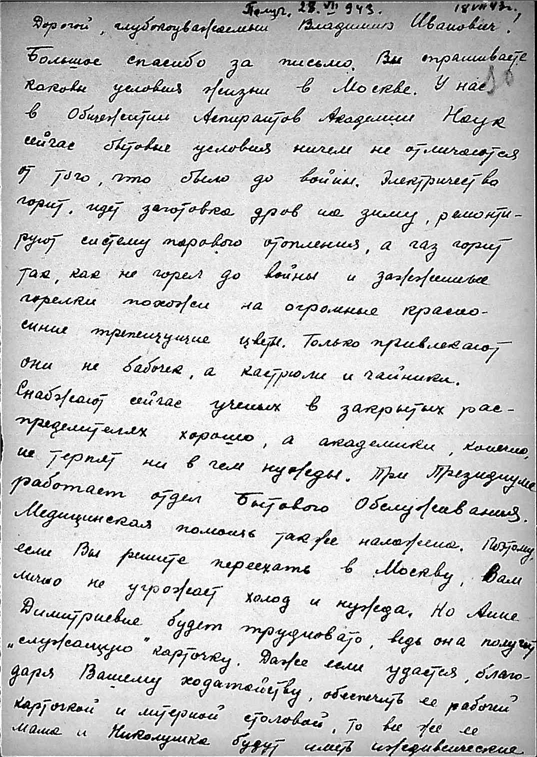 Получ. 28.VII 943. 18 VII 43 г.
Дорогой, глубокоуважаемый Владимир Иванович!
Большое спасибо за письмо. Вы спрашиваете
каковы условия жизни в Москве. У нас
в Общежитии Аспирантов Академии Наук
сейчас бытовые условия ничем не отличаются
от того, что было до войны. Электричество
горит, идет заготовка дров на зиму, ремонти-
руют систему парового отопления, а газ горит
так, как не горел до войны и зажженные
горелки похожи на огромные красно-
синие трепещущие цветы. Только привлекают
они не бабочек, а кастрюли и чайники.
Снабжают сейчас ученых в закрытых рас-
пределителях хорошо, а академики, конечно,
не терпят ни в чем нужды. При Президиуме
работает отдел Бытового Обслуживания.
Медицинская помощь также налажена. Поэтому,
если Вы решите переехать в Москву, Вам
лично не угрожает холод и нужда. Но Анне
Димитриевне будет трудновато, ведь она получит
„служащую" карточку. Даже если удастся, благо-
даря Вашему ходатайству, обеспечить ее рабочей
карточкой и литерной столовой, то все же ее
мама и Николушка будут иметь иждивенческие